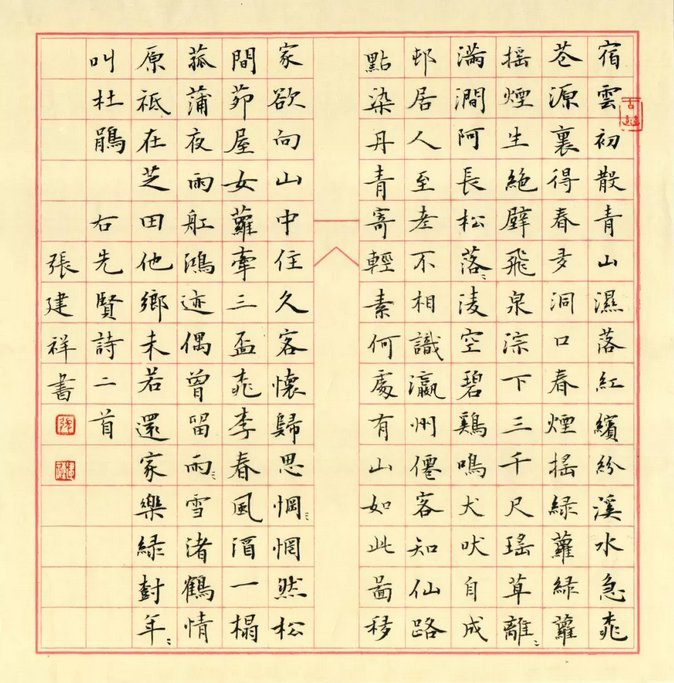 宿雲初散青山濕落紅繽紛溪水急桃
花源裏得春多洞口春煙搖綠蘿綠蘿
搖煙生絕壁飛泉淙下三千尺瑤草離〻
満澗阿長松落〻凌空碧鷄鳴犬吠自成
邨居人至老不相識瀛州僊客知仙路
點染丹青寄輕素何處有山如此啚移
家欲向山中住久客懷歸思惘〻惘然松
間茆屋女蘿牽三盃桃李春風酒一榻
菰蒲夜雨舡鴻迹偶曾留雨〻雪渚鶴情
原祇在芝田他鄉未若還家樂綠封年〻
叫杜鵑 右先賢詩二首
張建祥書